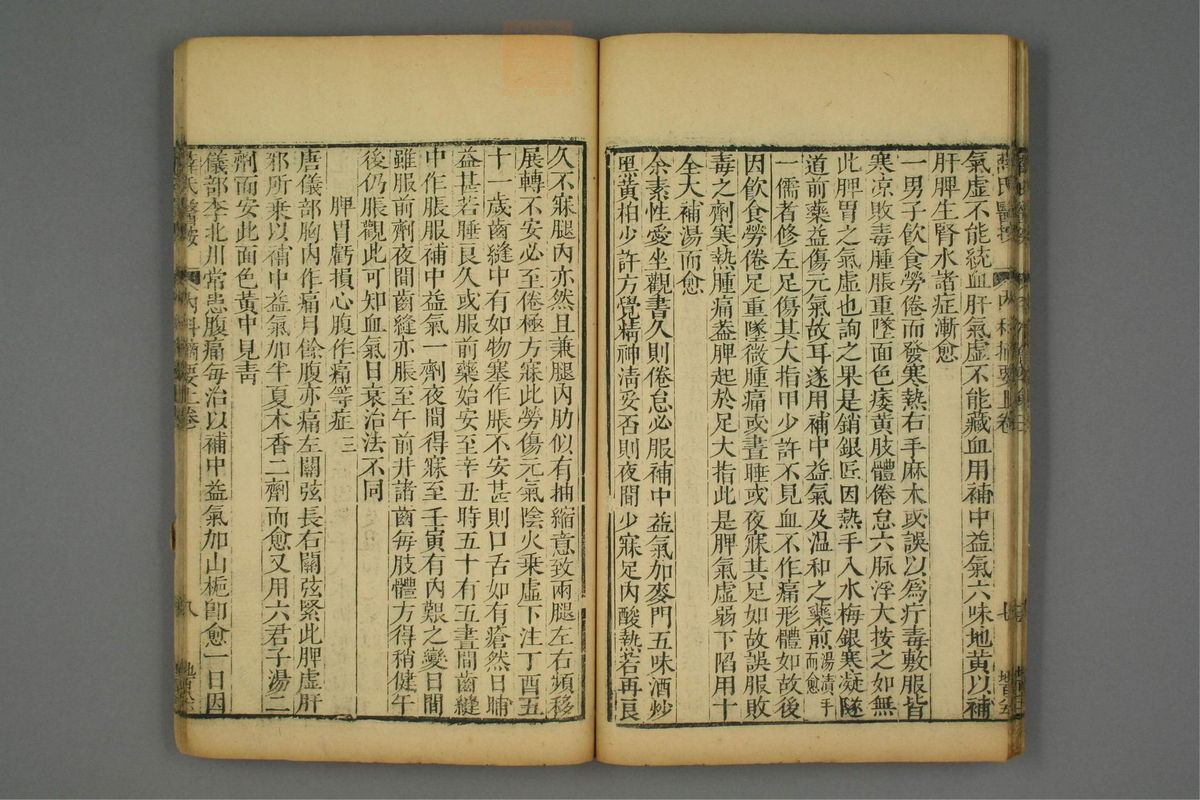 氣虛不能統血肝氣虛不能藏血用補中益氣六味地黃以補
肝脾生腎水諸症漸愈
一男子飲食勞倦而發寒熱右手麻木或誤以為疔毒敷服皆
寒凉敗毒腫脹重墜面色痿黃肢體倦怠六脉浮大按之如無
此脾胃之氣虛也詢之果是銷銀匠因熱手入水梅銀寒凝隧
道前藥益傷元氣故耳遂用補中益氣及温和之藥煎湯漬手而愈
一儒者修左足傷其大指甲少許不見血不作痛形體如故後
因飲食勞倦足重墜微腫痛或晝睡或夜寐其足如故誤服敗
毒之劑寒熱腫痛葢脾起於足大指此是脾氣虛弱下陷用十
全大補湯而愈
余素性愛坐觀書久則倦怠必服補中益氣加麥門五味酒炒
黑黃柏少許方覺精神淸妥否則夜間少寐足內酸熱若再良
久不寐腿內亦然且兼腿內肋似有抽縮意致兩腿左右頻移
展轉不安必至倦極方寐此勞傷元氣陰火乘虛下注丁酉五
十一歲齒縫中有如物塞作脹不安甚則口舌如有瘡然日晡
益甚若睡良久或服前藥始安至辛丑時五十有五晝間齒縫
中作脹服補中益氣一劑夜間得寐至壬寅有內艱之變日間
雖服前劑夜間齒縫亦脹至午前幷諸齒每肢體方得稍健午
後仍脹觀此可知血氣日衰治法不同
脾胃虧損心腹作痛等症三
唐儀部胸內作痛月餘腹亦痛左關弦長右關弦緊此脾虛肝
邪所乗以補中益氣加半夏木香二劑而愈又用六君子湯二
劑而安此面色黃中見靑
儀部李北川常患腹痛每治以補中益氣加山梔卽愈一日因
內科摘要上卷
八